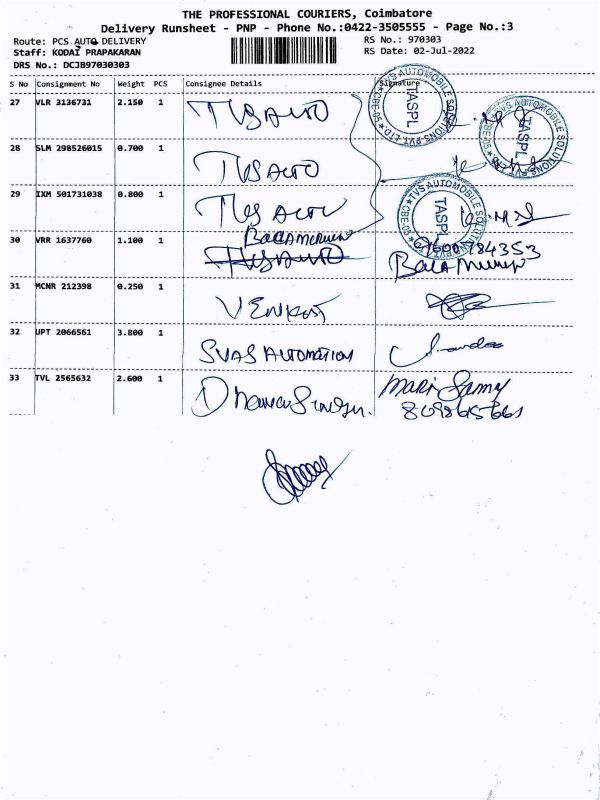 THE PROFESSIONAL COURIERS, Coimbatore
Delivery Runsheet - PNP - Phone No.:0422-3505555 - Page No.:3
Route: PCS AUTO DELIVERY RS No.: 970303
Staff: KODAI PRAPAKARAN RS Date: 02-Jul-2022
DRS No.: DCJB97030303
S No Consignment No Weight PCS Consignee Details Signature
27 VLR 3136731 2.150 1 TVS AUTO
TVS AUTOMOBILE SOLUTIONS PVT LTD CBE-05 TASPL
TVS AUTOMOBILE SOLUTIONS PVT LTD CBE-05 TASPL
28 SLM 298526015 0.700 1 TVS AUTO
29 IXM 501731038 0.800 1 TVS AUTO
TVS AUTOMOBILE SOLUTIONS PVT LTD CBE-05 TASPL
30 VRR 1637760 1.100 1 BALAMURUGAN
31 MCNR 212398 0.250 1 VENKAT
32 UPT 2066561 3.800 1 SVAS AUTOMATION
33 TVL 2565632 2.600 1 Mari Samy